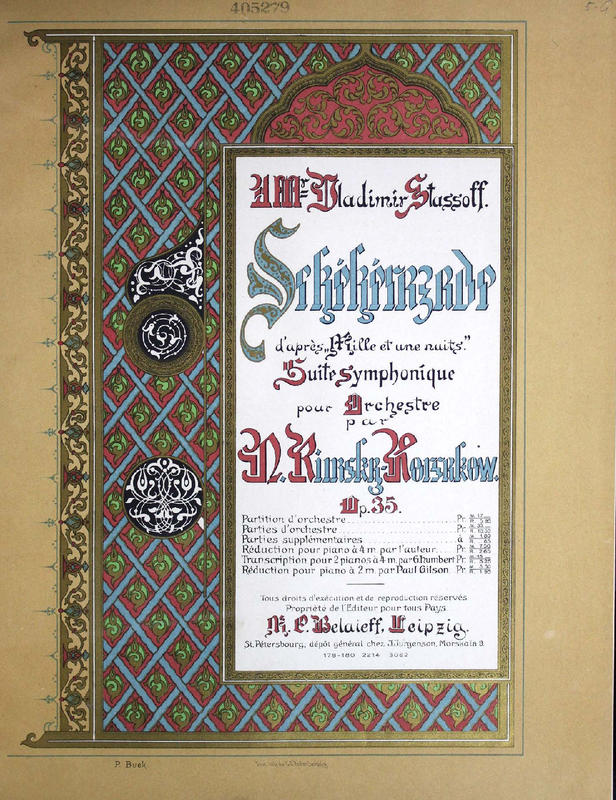 405279
5-6
A Mr Vladimir Stassoff.
Schéhérazade
d'après „Mille et une nuits."
Suite symphonique
pour Orchestre
par
N. Rimsky-Korsakow.
Op. 35.
Partition d'orchestre Pr.
Parties d'orchestre Pr.
Parties supplémentaires à
Réduction pour piano à 4 m. par l'auteur Pr.
Transcription pour 2 pianos à 4 m. par G. Humbert Pr.
Réduction pour piano à 2 m. par Paul Gilson Pr.
Tous droits d'exécution et de reproduction réservés
Propriété de l'Editeur pour tous Pays.
M. P. Belaieff, Leipzig.
St. Pétersbourg, dépôt général chez J. Jurgenson, Morskaïa 9.
179-180 2214 3082